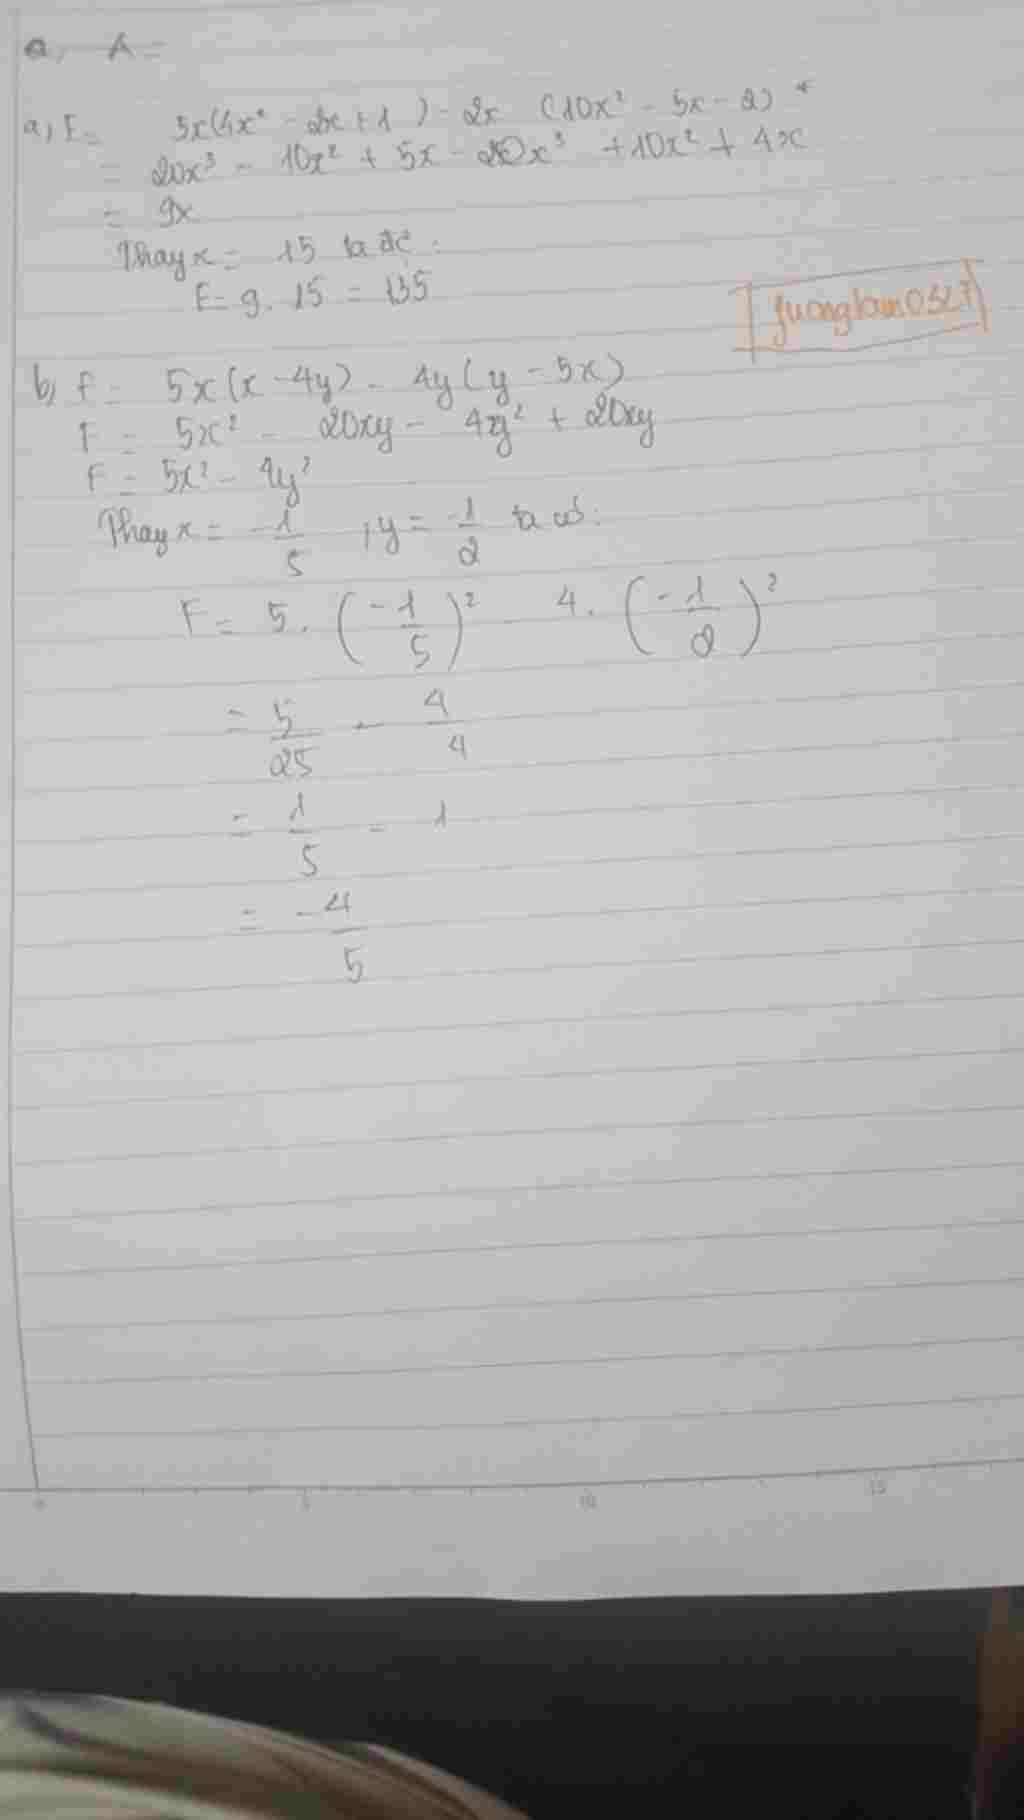 a, A =
a, E = 5x(4x² - 2x + 1) - 2x (10x² - 5x - 2)
= 20x³ - 10x² + 5x - 20x³ + 10x² + 4x
= 9x
Thay x = 15 ta đc :
E = 9 . 15 = 135
b, F = 5x(x - 4y) - 4y(y - 5x)
F = 5x² - 20xy - 4y² + 20xy
F = 5x² - 4y²
Thay x = -1/5 , y = -1/2 ta có:
F = 5 . (-1/5)² 4. (-1/2)²
= 5/25 - 4/4
= 1/5 - 1
= -4/5
0 5 10 15